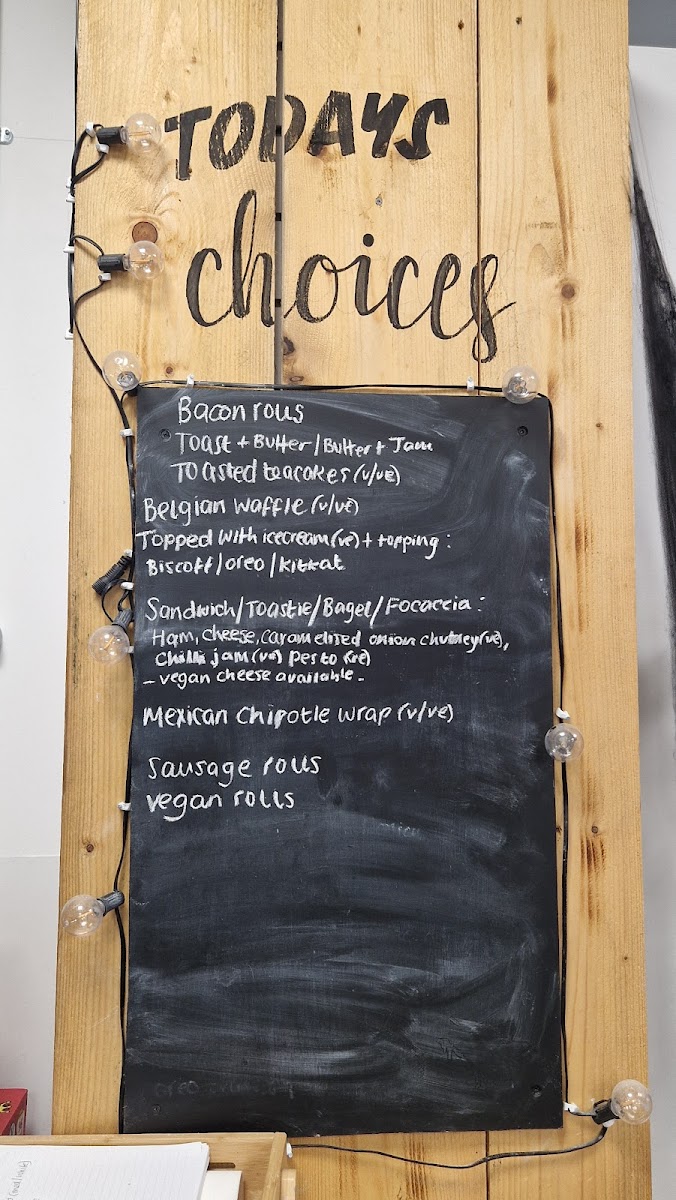 TODAYS
choices
Bacon rolls
Toast + Butter / Butter + Jam
Toasted teacakes (v/ve)
Belgian waffle (v/ve)
Topped with icecream (ve) + topping :
Biscoff / oreo / kitkat
Sandwich / Toastie / Bagel / Focaccia :
Ham, cheese, caramelised onion chutney (ve),
chilli jam (ve) Pesto (ve)
- vegan cheese available -
Mexican Chipotle wrap (v/ve)
Sausage rolls
vegan rolls